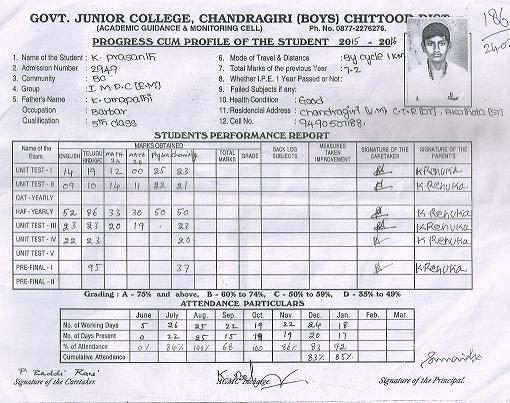 GOVT. JUNIOR COLLEGE, CHANDRAGIRI (BOYS) CHITTOOR DIST.
(ACADEMIC GUIDANCE & MONITORING CELL) Ph. No. 0877-2276276.
PROGRESS CUM PROFILE OF THE STUDENT 2015 - 2016
186
1. Name of the Student : K. Prasanth
2. Admission Number : 2949
3. Community : BC
4. Group : I M.P.C [E.M]
5. Father's Name : K. Umapathi
Occupation : Barbar
Qualification : 5th class
6. Mode of Travel & Distance : By cycle 1 km
7. Total Marks of the previous Year : 7.2
8. Whether I.P.E. 1 Year Passed or Not :
9. Failed Subjects if any :
10. Health Condition : Good
11. Residencial Address : chandragiri (V.M) C.T.R (DT),
12. Cell No. : 9490507188
STUDENTS PERFORMANCE REPORT
Name of the Exam. MARKS OBTAINED TOTAL MARKS GRADE BACK LOG SUBJECTS MEASURES TAKEN IMPROVEMENT SIGNATURE OF THE CARETAKER SIGNATURE OF THE PARENTS
ENGLISH TELUGU HINDI/OPZ MATH MATH Physics Chemistry
UNIT TEST - I 14 19 12 00 25 23 K Renuka
UNIT TEST - II 09 10 14 11 22 21 K Renuka
QAT - YEARLY
HAF - YEARLY 52 86 33 30 50 50 K. Renuka
UNIT TEST - III 23 23 20 19 . 23 K Renuka
UNIT TEST - IV 22 23 20 K Renuka
UNIT TEST - V
PRE-FINAL - I 95 37 K Renuka
PRE-FINAL - II
Grading : A - 75% and above, B - 60% to 74%, C - 50% to 59%, D - 35% to 49%
ATTENDANCE PARTICULARS
June July Aug. Sep. Oct. Nov. Dec. Jan. Feb. Mar.
No. of Working Days 5 26 25 22 19 22 24 18
No. of Days Present 0 22 25 15 19 19 20 17
% of Attendance 0% 84% 100% 68 100 86% 83 92
Cumulative Attendance 83% 85%
Signature of the Caretaker. AGMC Incharge Signature of the Principal.